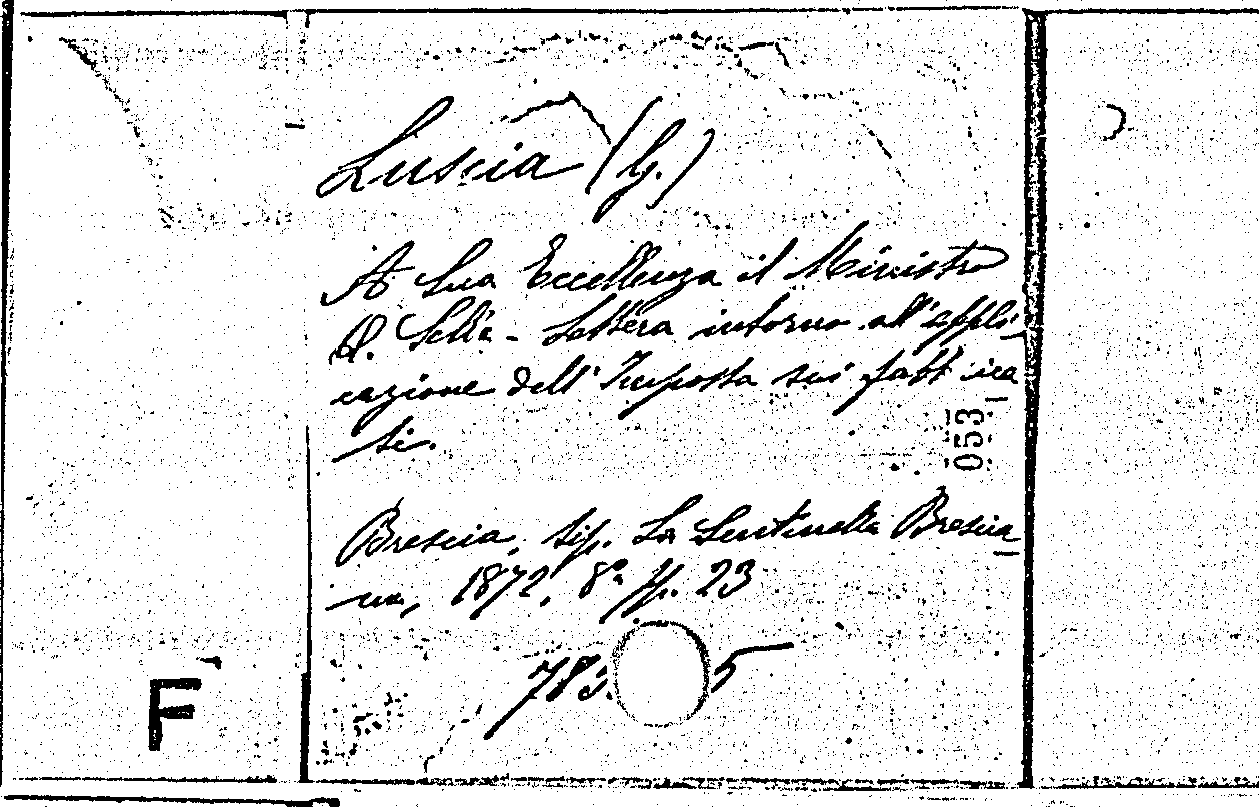 Luscia (G.)
A Sua Eccellenza il Ministro
Q. Sella - Lettera intorno all'appli
cazione dell'Imposta sui fabbrica
ti.
053
Brescia, tip. La Sentinella Brescia
na, 1872, 8° pp. 23
783. 5
F